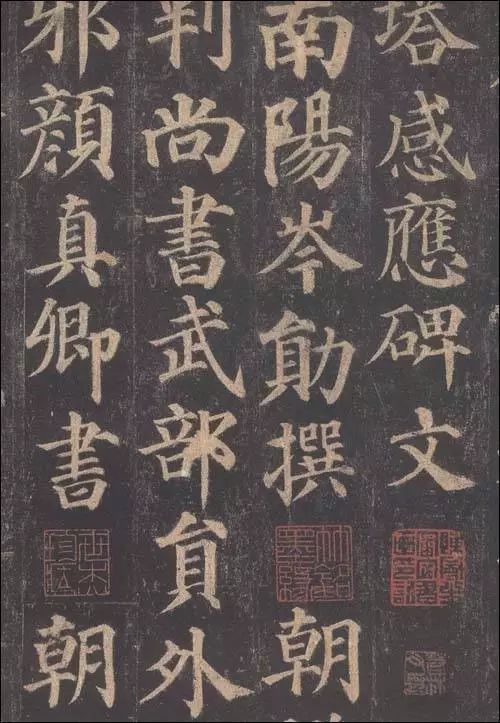 塔感應碑文
南陽岑勛撰朝
判尚書武部員外
邪顏真卿書朝